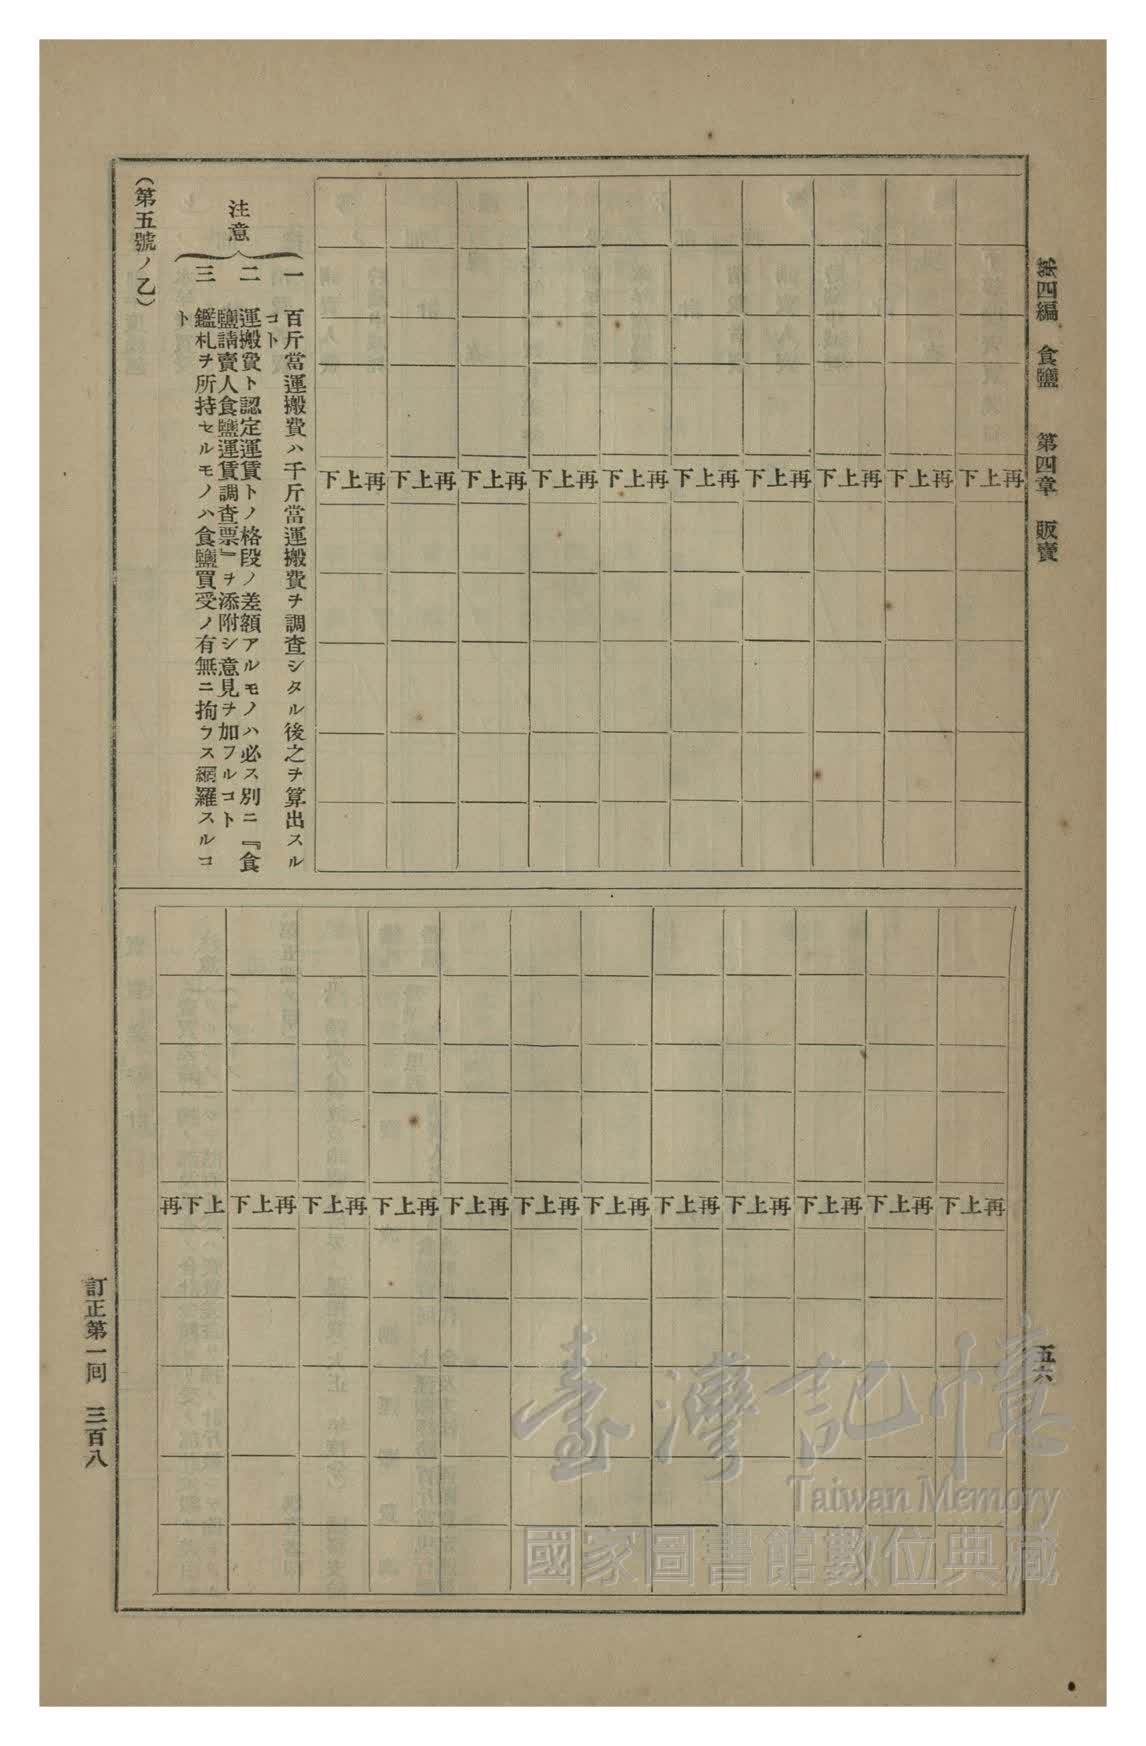 第四編　食鹽　　第四章　販賣
五六
再上下 再上下 再上下 再上下 再上下 再上下 再上下 再上下 再上下 再上下
注意
一　百斤當運搬費ハ千斤當運搬費ヲ調査シタル後之ヲ算出スル
コト
二　運搬費ト認定運賃トノ格段ノ差額アルモノハ必ス別ニ『食
鹽請賣人食鹽運賃調査票』ヲ添附シ意見ヲ加フルコト
三　鑑札ヲ所持セルモノハ食鹽買受ノ有無ニ拘ラス網羅スルコ
ト
（第五號ノ乙）
再上下 再上下 再上下 再上下 再上下 再上下 再上下 再上下 再上下 再上下 再上下 上下再
訂正第一回　三百八
臺灣記憶
Taiwan Memory
國家圖書館數位典藏